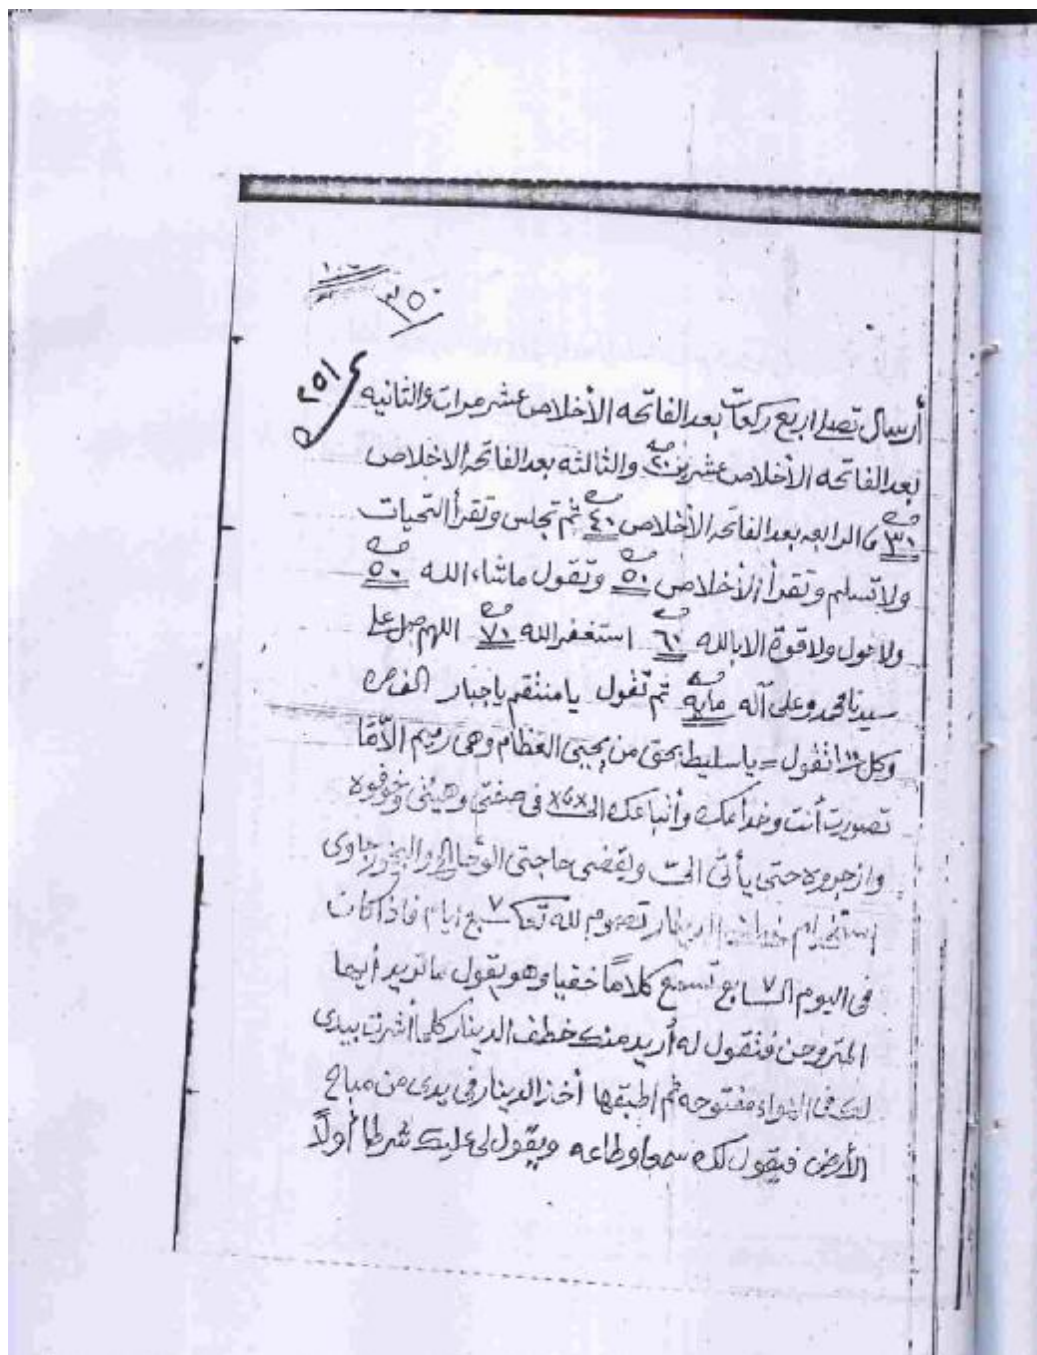 ٣٥٠
٢٥١
أرسال تصلى اربع ركعات بعد الفاتحه الأخلاص عشر مرات والثانيه
بعد الفاتحه الأخلاص عشرين ٢٠ والثالثه بعد الفاتحه الاخلاص
٣٠ والرابعه بعد الفاتحه الأخلاص ٤٠ ثم تجلس وتقرأ التحيات
ولا تسلم وتقرأ الأخلاص ٥٠ وتقول ماشاء الله ٥٠
ولا حول ولا قوة الا بالله ٦٠ استغفر الله ٧٠ اللهم صل على
سيدنا محمد وعلى آله مايه ثم تقول يا منتقم يا جبار الف مره
وكل تقول = يا سليط بحق من يحيى العظام وهى رميم الا ما
تصورت أنت وخدامك وأتباعك الى في صفتى وهيئتى وخوفوه
وازجروه حتى يأتى الىّ ويقضى حاجتى والبخور جاوى
استخدام الدينار تصوم لله تعا سبع ٧ ايام فاذا كان
فى اليوم السابع ٧ تسمع كلاما خفيا وهو يقول ما تريد أيها
المتروحن فتقول له أريد منك خطف الدينار كلما أشرت بيدى
لك فى الهواء مفتوحه ثم اطبقها أخذ الدينار فى يدى من مباح
الأرض فيقول لك سمعا وطاعه ويقول لى عليك شرطا أولاً